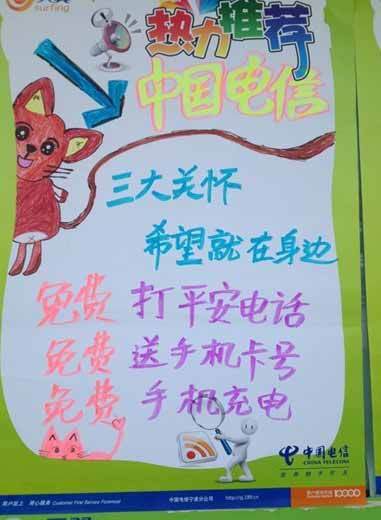 surfing
热力推荐
中国电信
三大关怀
希望就在身边
免费 打平安电话
免费 送手机卡号
免费 手机充电
中国电信
CHINA TELECOM
世界触手可及
用户至上 用心服务 Customer First Service Foremost